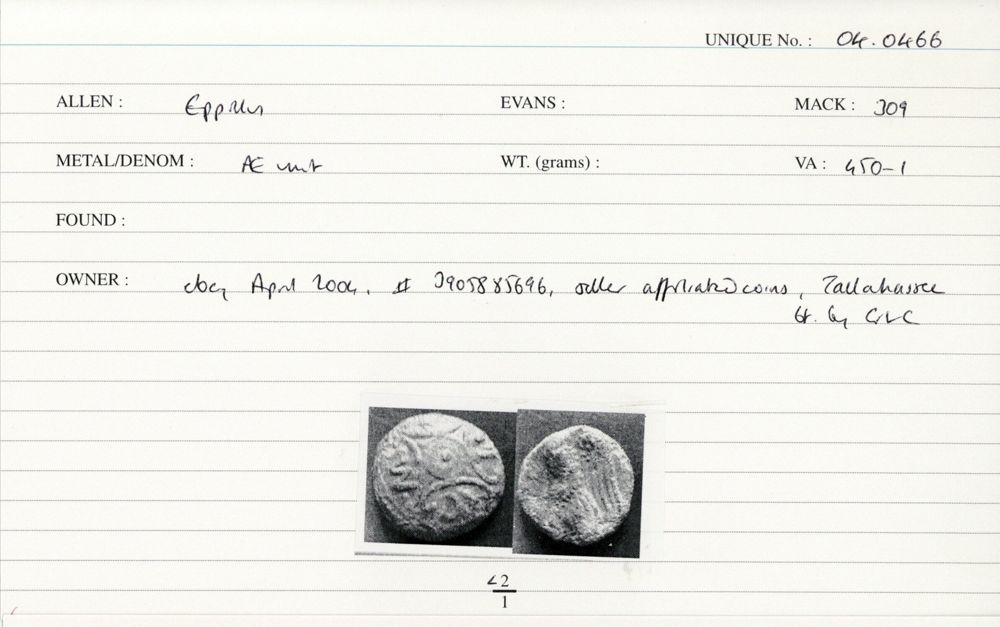 UNIQUE No. : 04.0466
ALLEN : Eppillus EVANS : MACK : 309
METAL/DENOM : Æ unit WT. (grams) : VA : 450-1
FOUND :
OWNER : ebay April 2004, # 3905885696, seller affiliatedcoins, Tallahassee
bt. by
<2
1